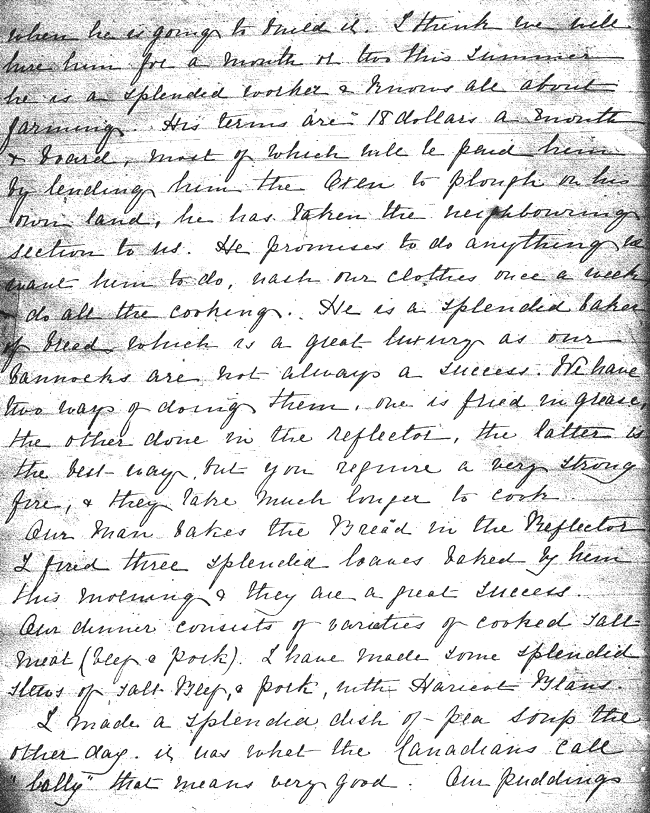 when he is going to build it. I think we will
hire him for a month or two this summer
he is a splendid worker & knows all about
farming. His terms are 18 dollars a month
& board, most of which will be paid him
by lending him the Oxen to plough on his
own land, he has taken the neighbouring
section to us. He promises to do anything we
want him to do, wash our clothes once a week
do all the cooking. He is a splendid baker
of bread, which is a great luxury as our
bannocks are not always a success. We have
two ways of doing them, one is fried in grease,
the other done in the reflector, the latter is
the best way, but you require a very strong
fire, & they take much longer to cook
Our man bakes the Bread in the Reflector
I found three splendid loaves baked by him
this morning & they are a great success.
Our dinner consists of varieties of cooked salt
meat (beef & pork). I have made some splendid
stews of salt Beef, & pork, with Haricot Beans.
I made a splendid dish of pea soup the
other day. it was what the Canadians call
"bully" that means very good. Our puddings